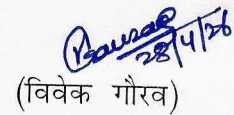 28/4/26
(विवेक गौरव)